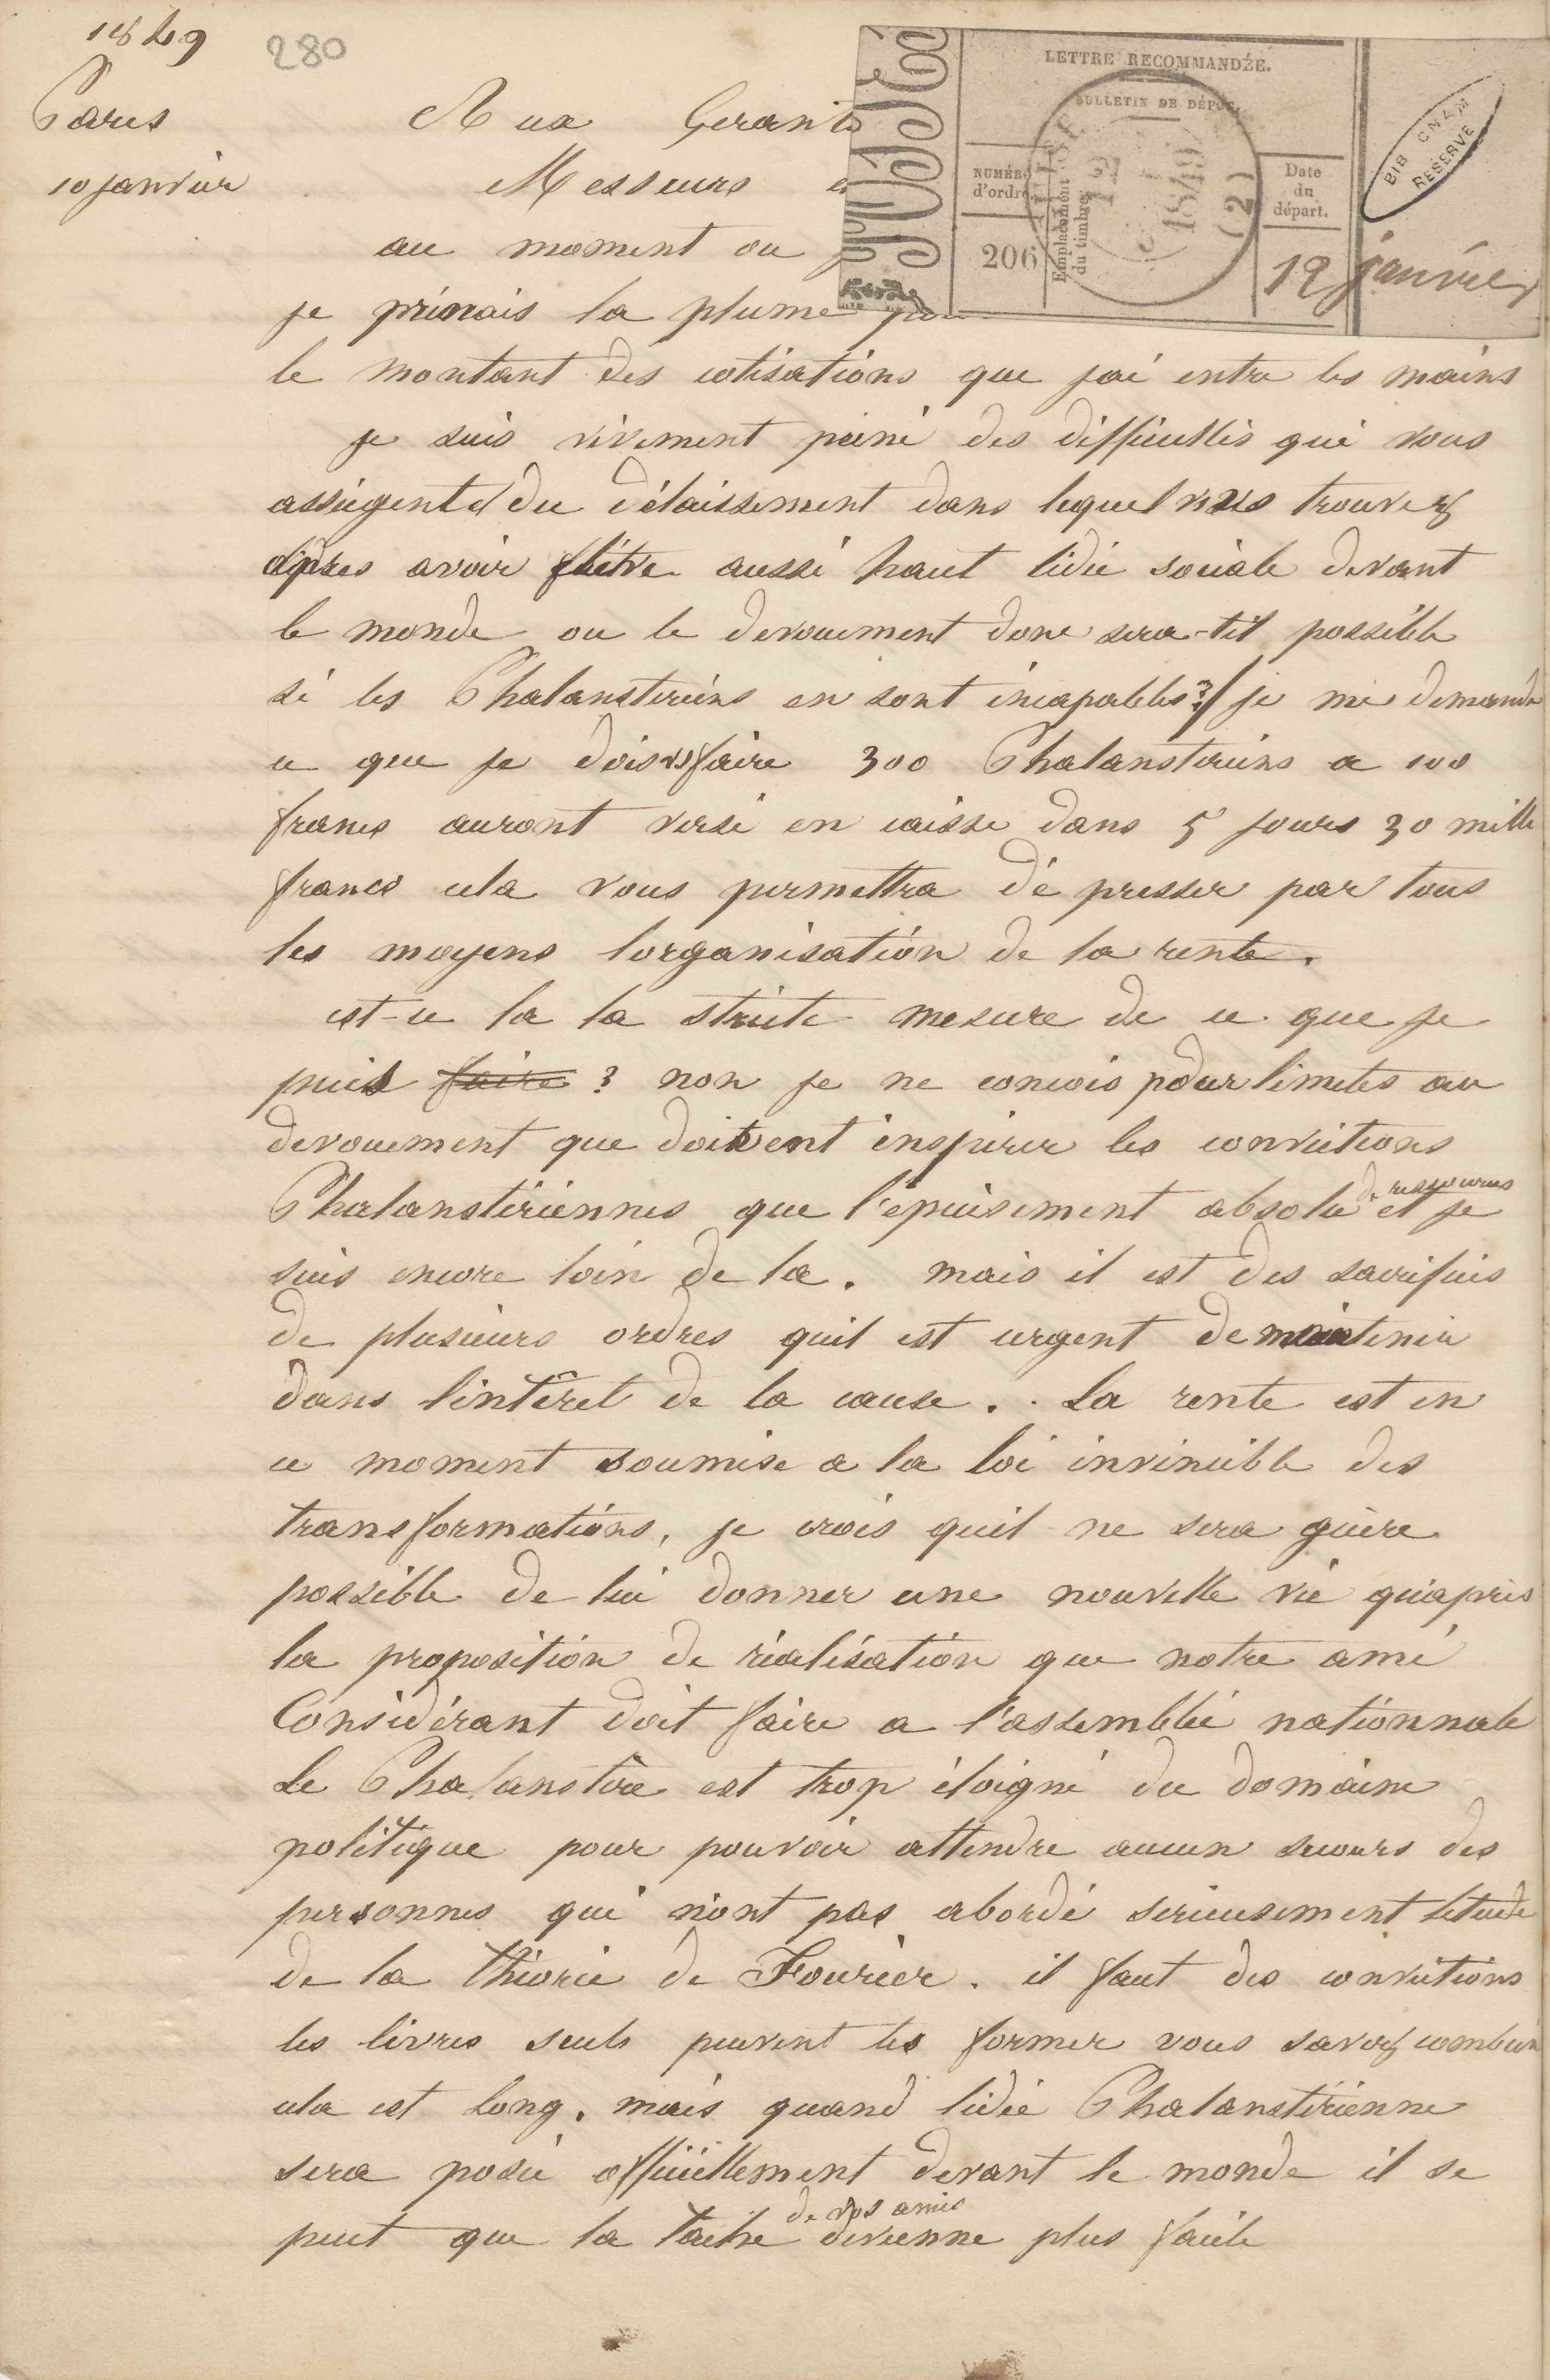 1849
280
Paris
10 janvier
Aux Gerants
Messieurs
au moment ou
je prenais la plume pour
le montant des cotisations que jai entre les mains
je suis vivement peiné des difficultés qui vous
assiegent et du délaissement dans lequel vous trouvez
après avoir aussi haut lidée sociale devant
le monde ou le devouement donc sera-til possible
si les Phalansteriens en sont incapables? je me demande
ce que je dois faire 300 Phalansteriens a 100
francs auront versé en caisse dans 5 jours 30 mille
francs cela vous permettra de presser par tous
les moyens lorganisation de la rente.
est-ce la la stricte mesure de ce que je
puis faire ? non je ne concois pour limites au
devouement que doivent inspirer les convictions
Phalanstériennes que l'épuisement absolu de ressources et je
suis encore loin de la. mais il est des sacrifices
de plusieurs ordres quil est urgent de maintenir
dans lintêret de la cause. La rente est en
ce moment soumise a la loi invincible des
transformations, je crois quil ne sera guère
possible de lui donner une nouvelle vie quaprès
la proposition de réalisation que notre ami
Considérant doit faire a l'assemblée nationnale
Le Phalanstère est trop éloigné du domaine
politique pour pouvoir attendre aucun secours des
personnes qui n'ont pas abordé serieusement létude
de la théorie de Fourier. il faut des convictions
les livres seuls peuvent les former vous savez combien
cela est long. mais quand lidée Phalanstérienne
sera posée officiellement devant le monde il se
peut que la tache de vos amis devienne plus facile
LETTRE RECOMMANDÉE.
BULLETIN DE DÉPÔT.
NUMÉRO
d'ordre.
206
Emplacement
du timbre
GUISE
12
1849
(2)
Date
du
départ.
12 janvier
BIB CNAM
RESERVE